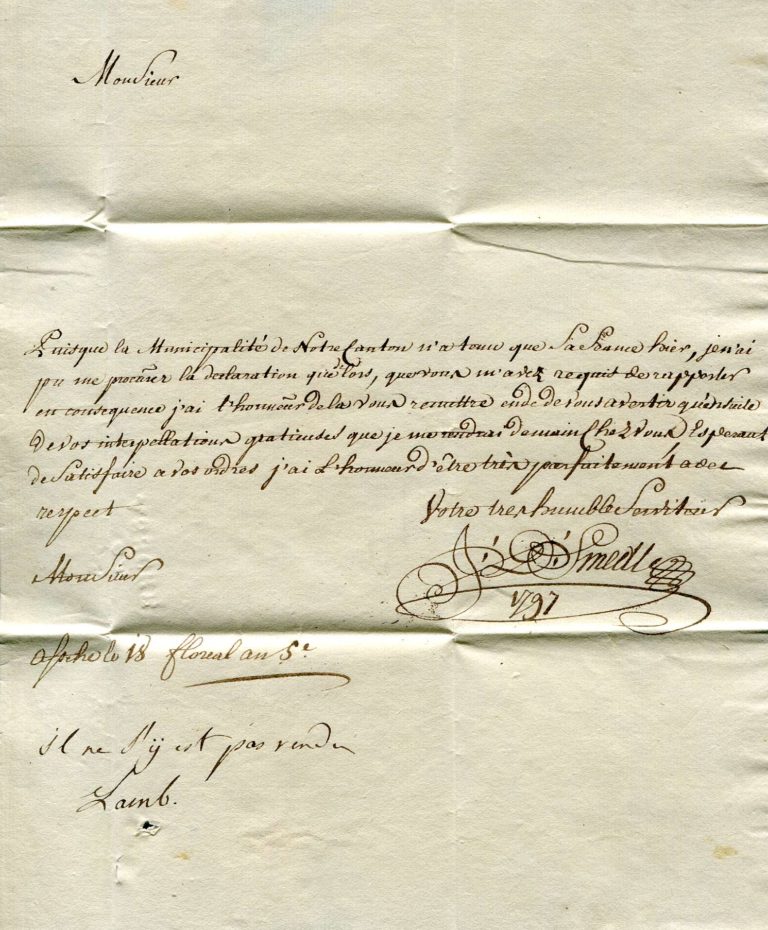 Monsieur
Puisque la Municipalité de Notre Canton n'a tenu que Sa Séance hier, je n'ai
pu me procurer la declaration que lors, que vous m'avez requit de rapporter
en consequence j'ai l'honneur de la vous remettre de vous avertir qu'ensuite
de vos interpellations gratieuses que je me rendrai demain Chez Vous Esperant
de Satisfaire a vos ordres j'ai L'honneur d'être très parfaitement avec
respect
Votre tres humble Serviteur
Monsieur
J: D: Smedt
1797
Assche le 18 floreal an 5e
il ne s'ij est pas rendu
Lamb.